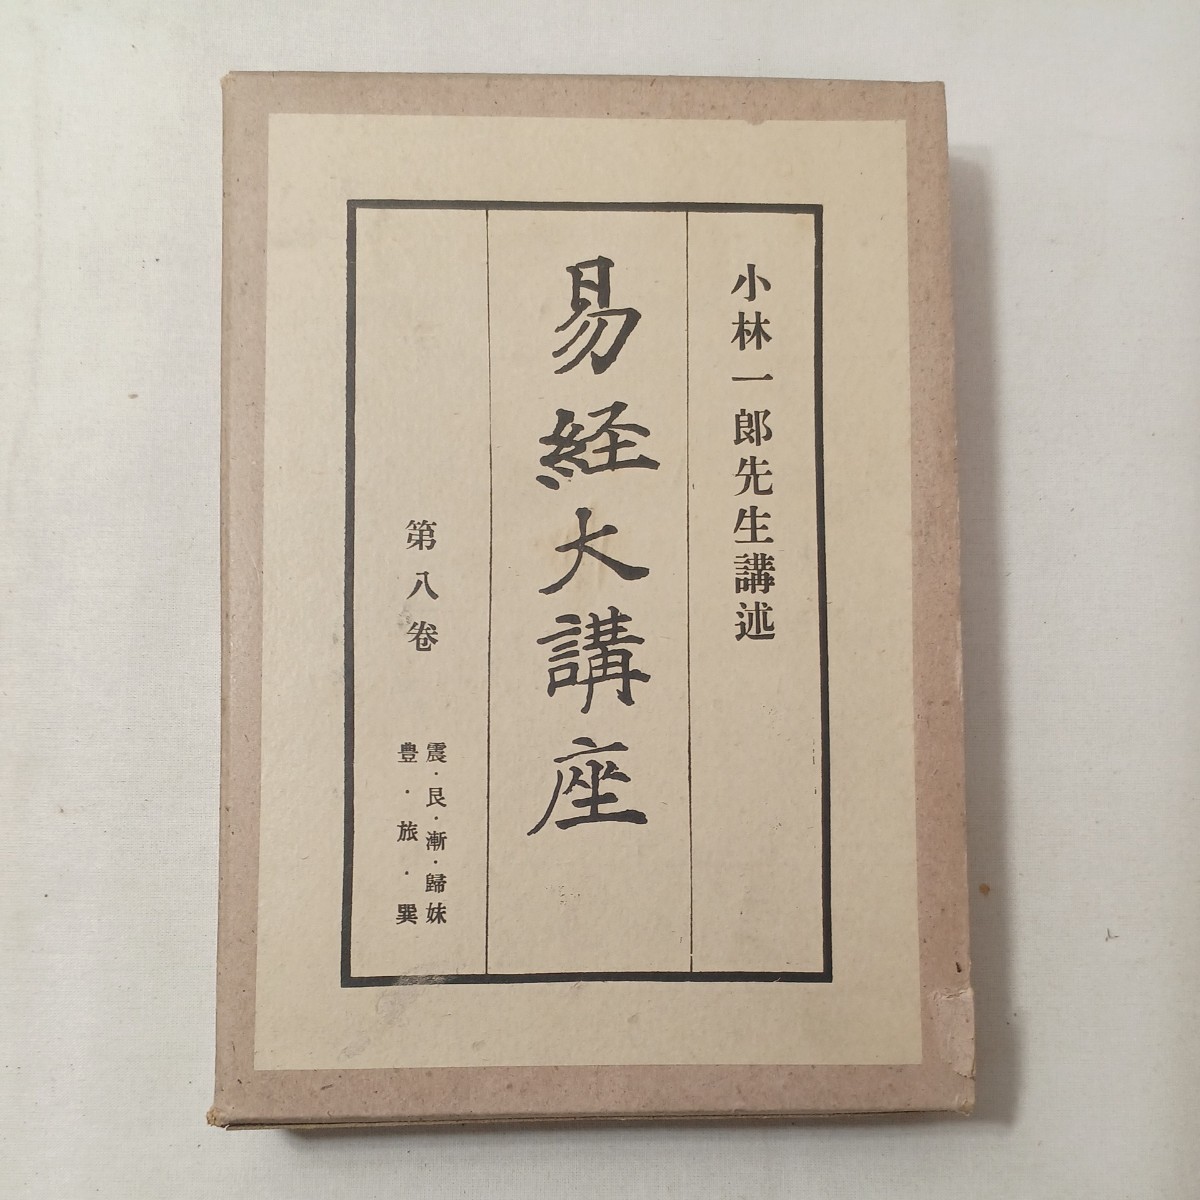 小林一郎先生講述
易経大講座
第八卷
震・艮・漸・歸妹
豊・旅・巽